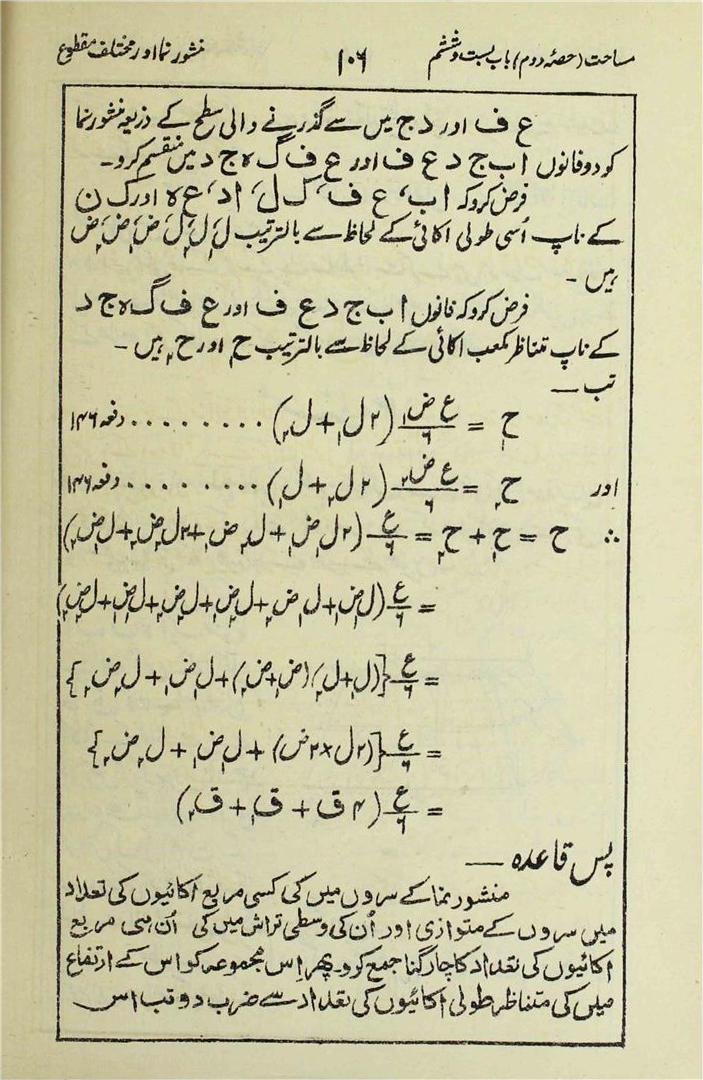 مساحت (حصۂ دوم) باب بست و ششم ۱۰۶ منشور نما اور مختلف مقطوع
ع ف اور د ج میں سے گذرنے والی سطح کے ذریعہ منشور نما
کو دو فانوں ا ب ج د ع ف اور ع ف گ ہ ج د میں منقسم کرو۔
فرض کرو کہ ا ب، ع ف، ک ل، ا د، ع ہ اور ک ن
کے ناپ اُسی طولی اکائی کے لحاظ سے بالترتیب ل₁، ل₂، ل، ض₁، ض₂، ض
ہیں ۔
فرض کرو کہ فانوں ا ب ج د ع ف اور ع ف گ ہ ج د
کے ناپ متناظر مکعب اکائی کے لحاظ سے بالترتیب ح₁ اور ح₂ ہیں ۔
تب ــــ
ح₁ = ع ض₁/۶ (۲ ل₁ + ل₂) ......... دفعہ ۱۴۶
اور ح₂ = ع ض₂/۶ (۲ ل₂ + ل₁) ......... دفعہ ۱۴۶
∴ ح = ح₁ + ح₂ = ع/۶ (۲ ل₁ض₁ + ل₂ض₁ + ۲ل₂ض₂ + ل₁ض₂)
= ع/۶ (ل₁ض₁ + ل₂ض₁ + ل₁ض₂ + ل₂ض₂ + ل₁ض₁ + ل₂ض₂)
= ع/۶ {(ل₁ + ل₂)(ض₁ + ض₂) + ل₁ض₁ + ل₂ض₂}
= ع/۶ {(۲ ل × ۲ ض) + ل₁ض₁ + ل₂ض₂}
= ع/۶ (۴ ق + ق₁ + ق₂)
پس قاعدہ ــــ
منشور نما کے سروں میں کی کسی مربع اکائیوں کی تعداد
میں سروں کے متوازی اور اُن کی وسطی تراش میں کی اُن ہی مربع
اکائیوں کی تعداد کا چار گنا جمع کرو۔ پھر اِس مجموعہ کو اس کے ارتفاع
میں کی متناظر طولی اکائیوں کی تعداد سے ضرب دو تب اس